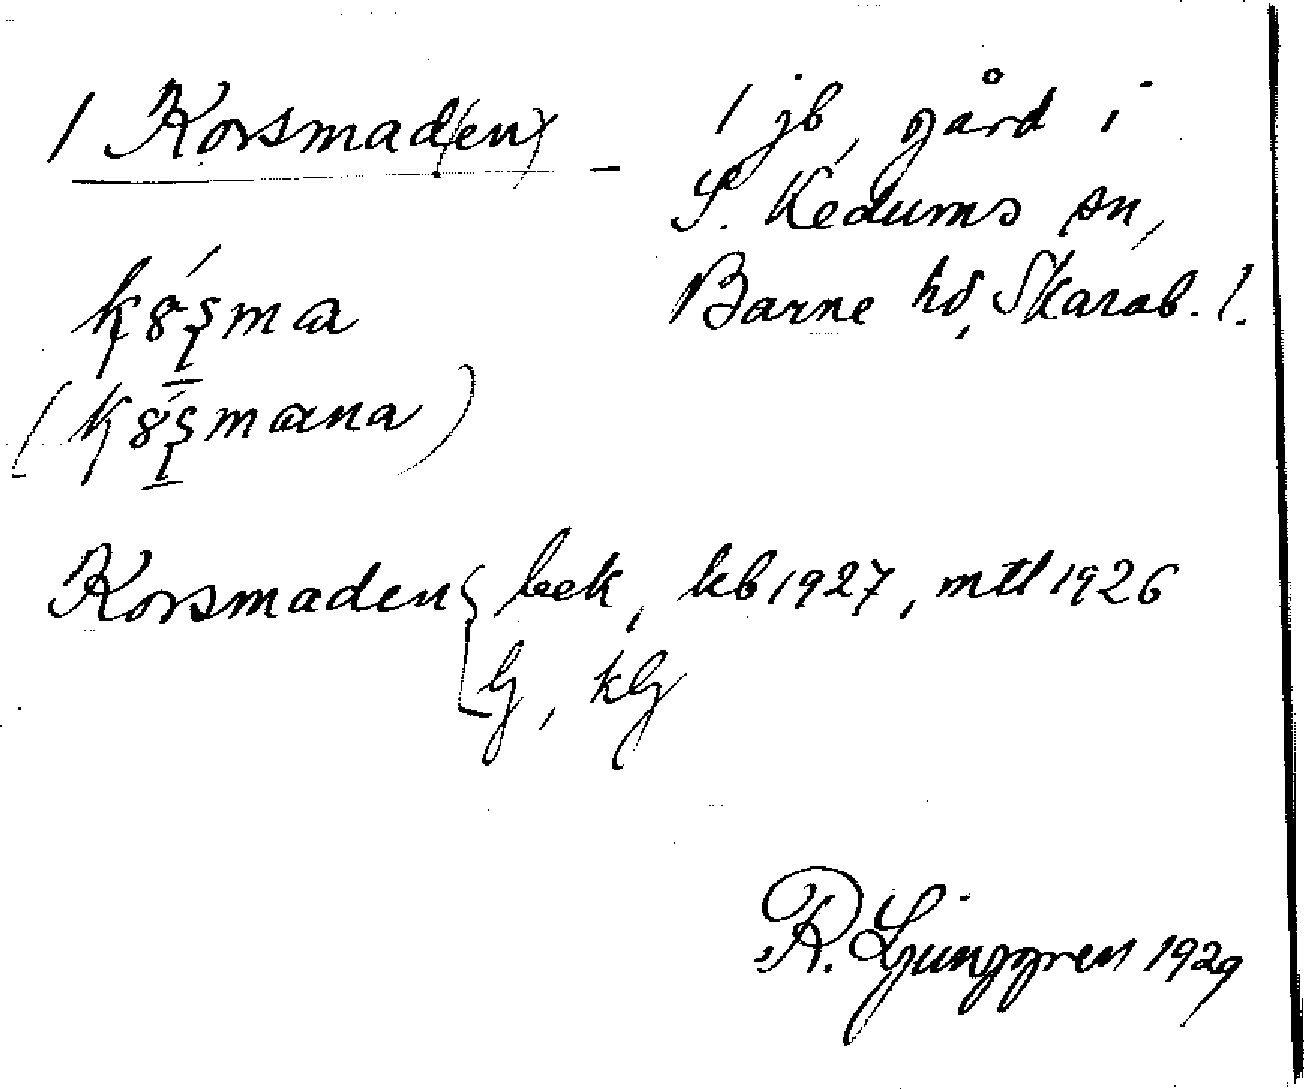 1 Korsmad(en) – 1 jb, gård i
S. Kedums sn,
Barne hd, Skarab. l.
Korsmaden { bek, kb 1927, mtl 1926
G, kG
R. Ljunggren 1929